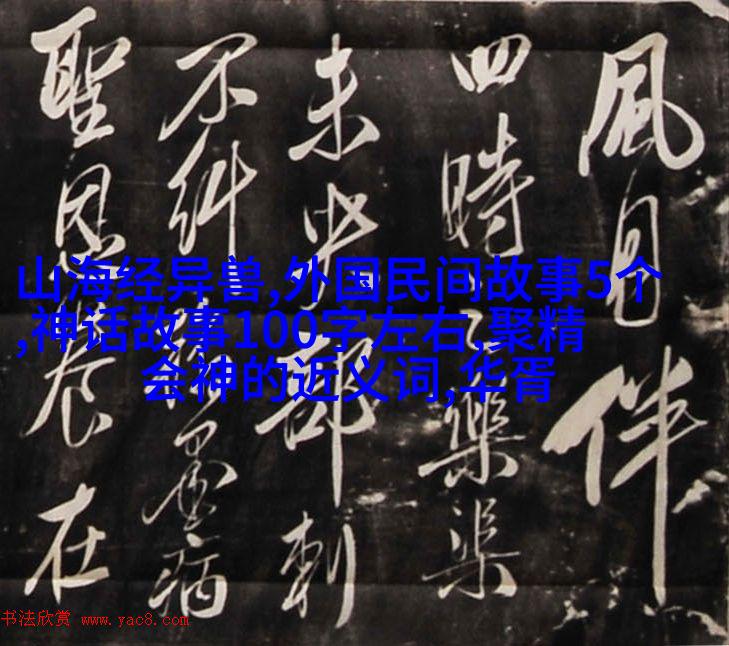 風月伴
四時樂渠
未部刺
不糾病
聖恩在
山海经异兽,外国民间故事5个
,神话故事100字左右,聚精
会神的近义词,华胥
书法欣赏 www.yac8.com